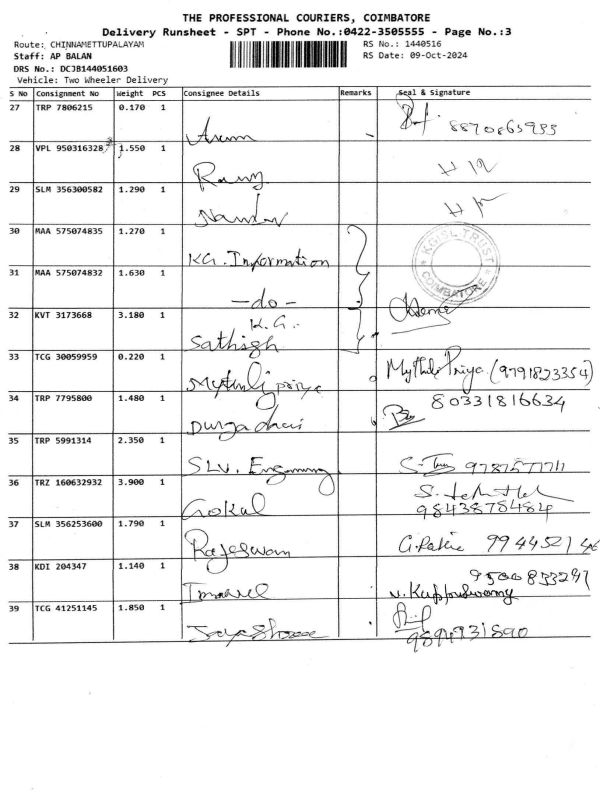 THE PROFESSIONAL COURIERS, COIMBATORE
Delivery Runsheet - SPT - Phone No.:0422-3505555 - Page No.:3
Route: CHINNAMETTUPALAYAM
RS No.: 1440516
Staff: AP BALAN
RS Date: 09-Oct-2024
DRS No.: DCJB144051603
Vehicle: Two Wheeler Delivery
S No Consignment No Weight PCS Consignee Details Remarks Seal & Signature
27 TRP 7806215 0.170 1
Arum 8870865933
28 VPL 950316328 1.550 1
Ramy
29 SLM 356300582 1.290 1
Nandav
30 MAA 575074835 1.270 1
KG. Information
KGISL TRUST COIMBATORE
31 MAA 575074832 1.630 1
-do-
32 KVT 3173668 3.180 1
K.G.
Sathish
33 TCG 30059959 0.220 1
Mythili priya Mythili Priya (9791823354)
34 TRP 7795800 1.480 1
Durga devi 80331816634
35 TRP 5991314 2.350 1
SLV. Engineering
36 TRZ 160632932 3.900 1
Gokul 9843878484
37 SLM 356253600 1.790 1
Rajeswari 99445214
38 KDI 204347 1.140 1
9500833297
V. Kuppuswamy
39 TCG 41251145 1.850 1
Jayashree
9894931890